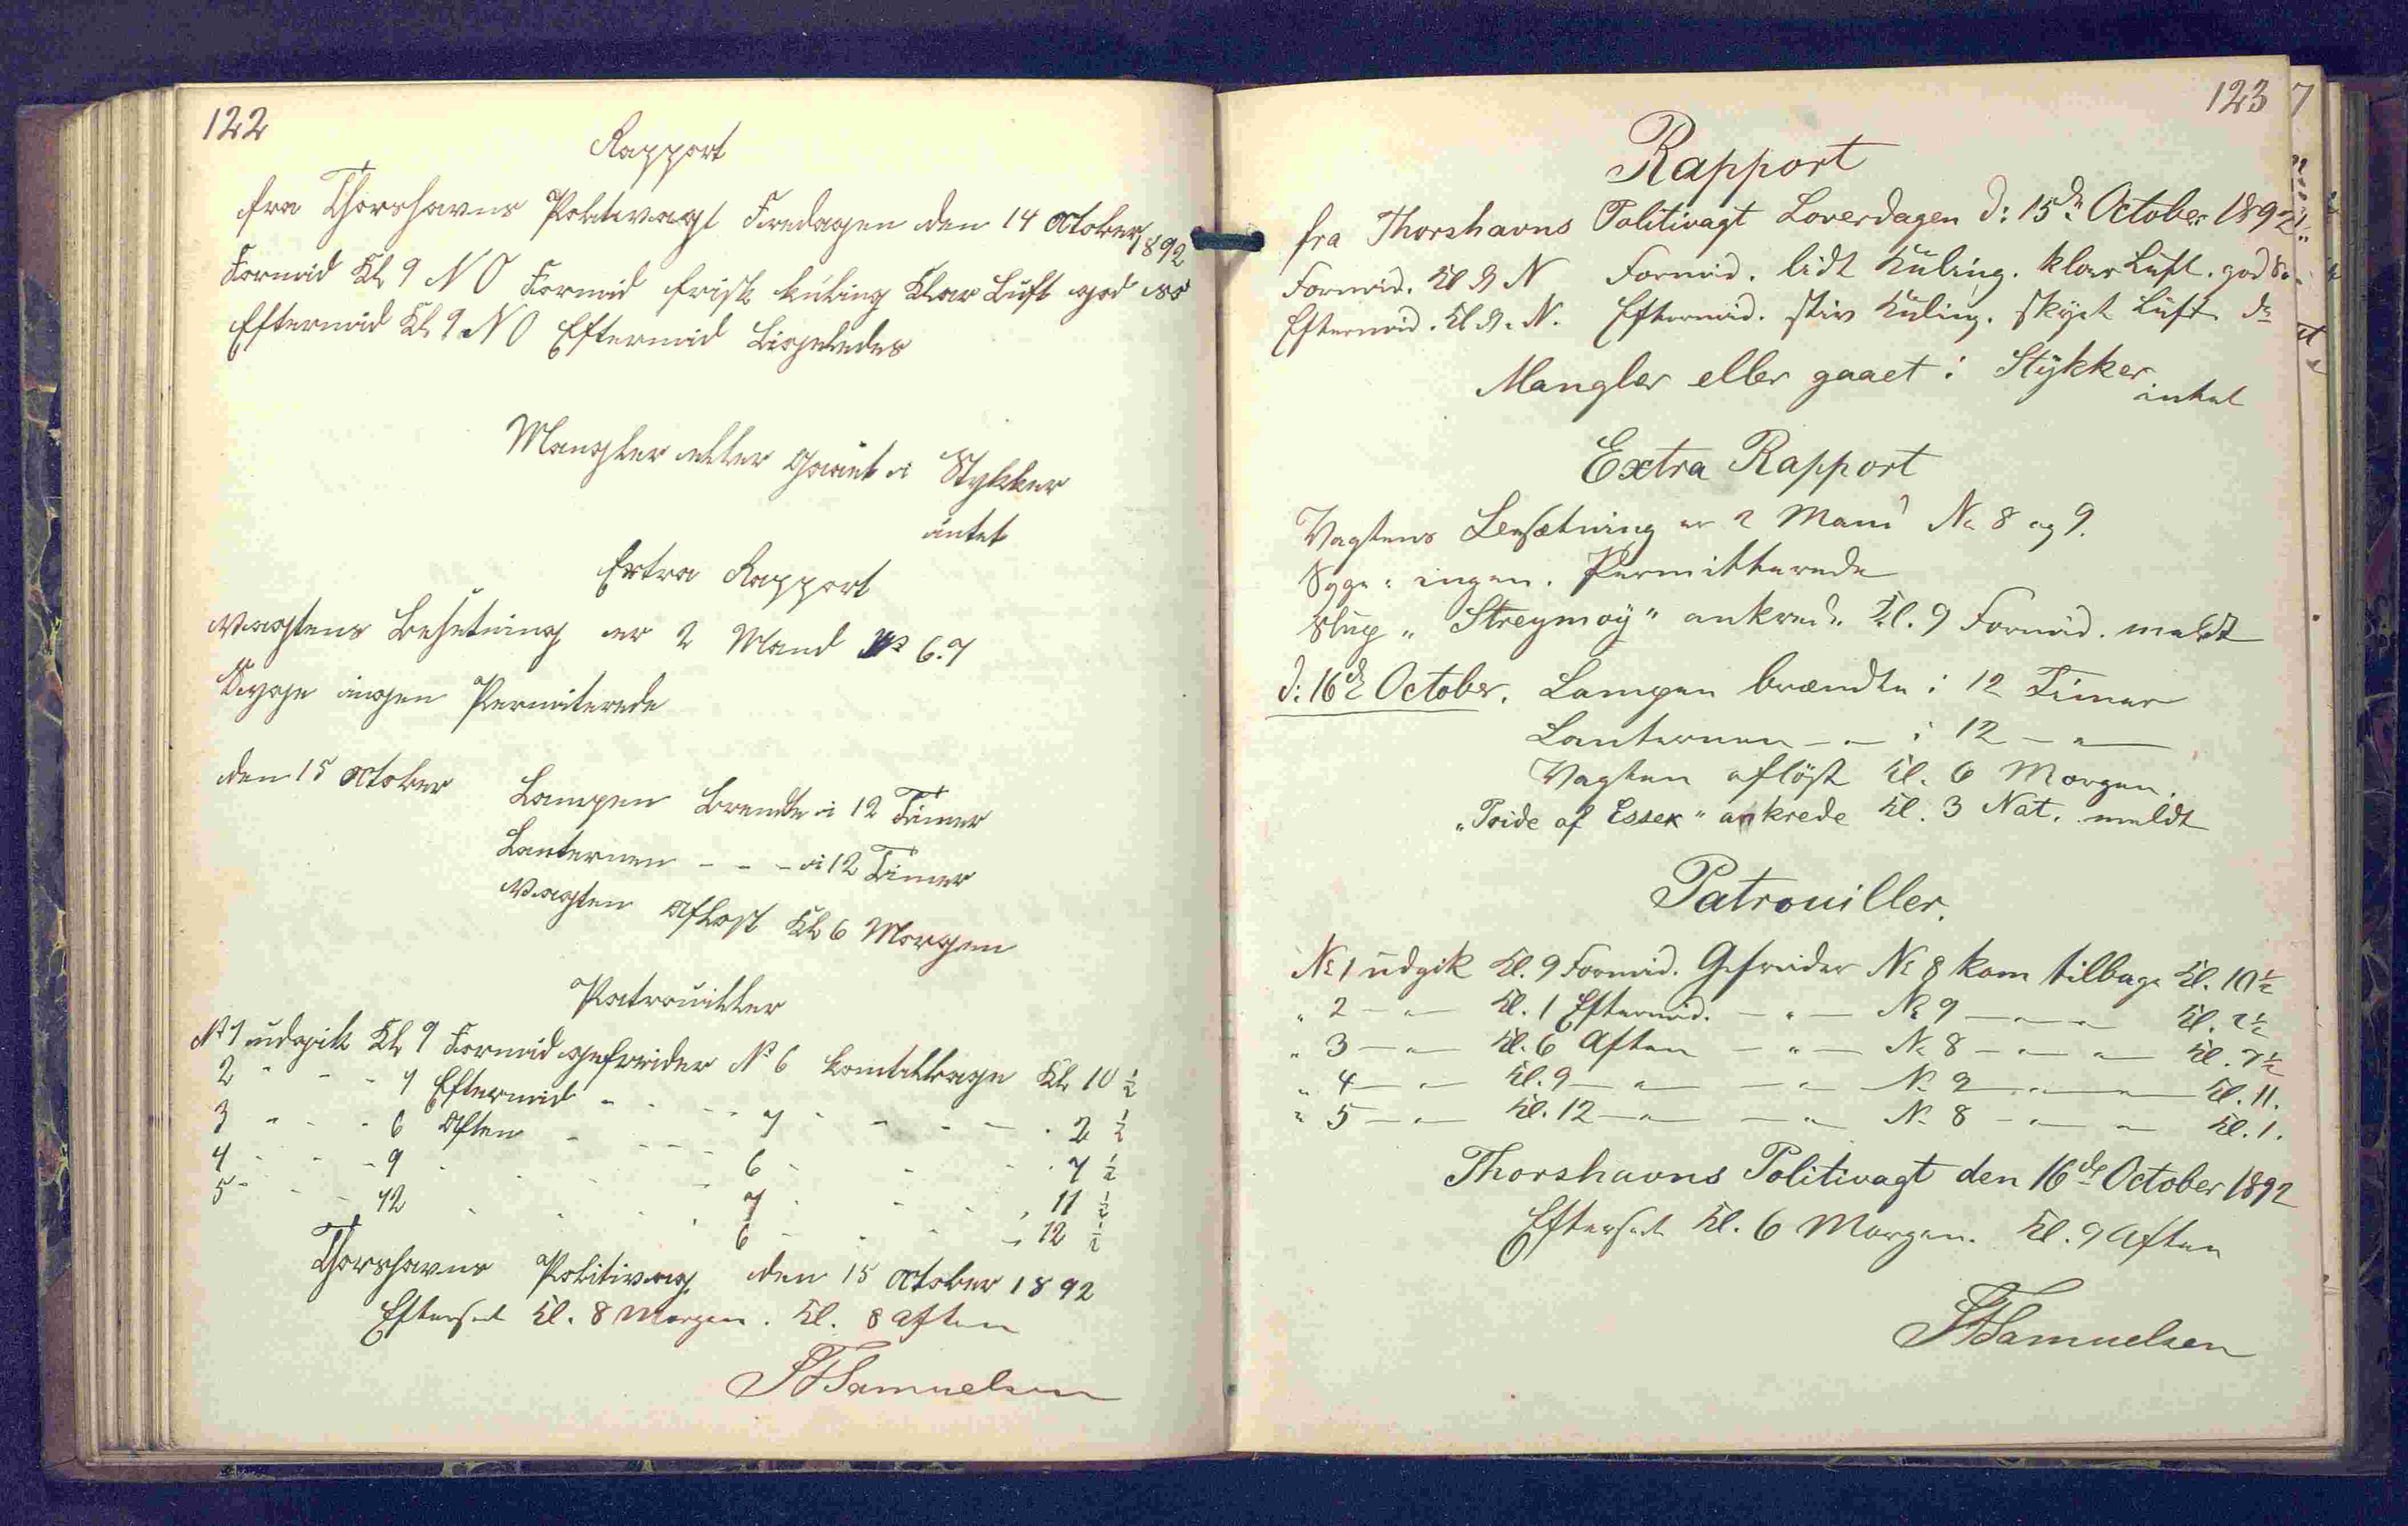 122
Rapport
fra Thorshavns Politivagt Fredagen den 14 October 1892
Formid Kl 9 N O Formid frisk kuling Klar Luft god
Eftermid Kl 9 N O Eftermid Ligeledes
Mangler eller gaaet i Stykker
intet
Extra Rapport
Vagtens Besetning er 2 Mand No 6.7
Syge ingen Permiterede
den 15 October Lampen Brendte i 12 Timer
Lanternen - - - i 12 Timer
Vagten Aflost Kl 6 Morgen
Patrouiller
No 1 udgik Kl 9 Formid gefreider No 6 kom tilbage Kl 10 ½
2 - - - 1 Eftermid - - - 7 - - - - 2 ½
3 - - - 6 Aften - - - 6 - - - 7 ½
4 - - - 9 - - - 7 - - - 11 ½
5 - - - 12 - - - 6 - - - 12 ½
Thorshavns Politivag den 15 October 1892
Efterset Kl. 8 Morgen. Kl. 8 Aften
Samuelsen
123
Rapport
fra Thorshavns Politivagt Loverdagen d: 15de October 1892
Formid. Kl 9 N Formid. lidt Kuling. klar Luft. god
Eftermid. Kl 9. N. Eftermid. stiv Kuling. skyet Luft do
Mangler eller gaaet i Stykker
intet
Extra Rapport
Vagtens Besætning er 2 Mand No 8 og 9.
Syge: ingen. Permitterede
Slup "Streymoÿ" ankred. Kl. 9 Formid. meldt
d: 16de October. Lampen brændte i 12 Timer
Lanternen - " - i 12 - " -
Vagten aflöst Kl. 6 Morgen.
"Pride of Essex" ankrede Kl. 3 Nat. meldt
Patrouiller.
No 1 udgik Kl. 9 Formid. Gefreider No 8 kom tilbage Kl. 10½
" 2 - " - Kl. 1 Eftermid. - " - No 9 - " - " - Kl. 2½
" 3 - " - Kl. 6 Aften - " - No 8 - " - " - Kl. 7½
" 4 - " - Kl. 9 - " - - " - No 9 - " - " - Kl. 11.
" 5 - " - Kl. 12 - " - - " - No 8 - " - " - Kl. 1.
Thorshavns Politivagt den 16de October 1892
Efterset Kl. 6 Morgen. Kl. 9 Aften
Samuelsen